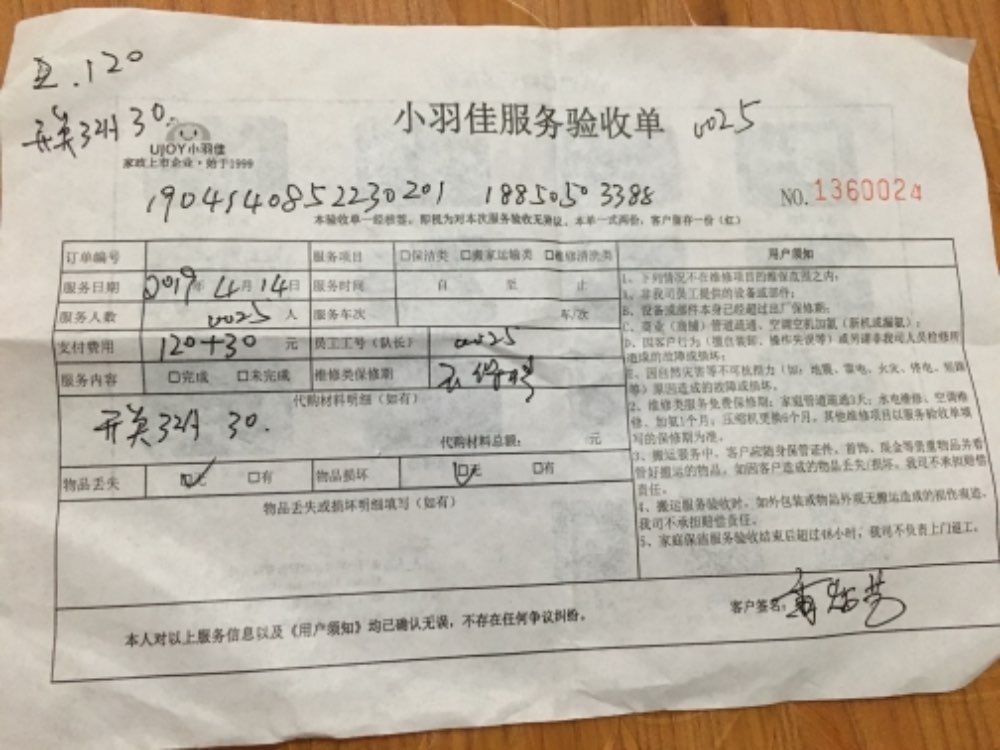 120
开关32A 30.
UJOY小羽佳
家政上市企业·始于1999
小羽佳服务验收单 0025
1904140852230201 18850503388
NO. 1360024
本验收单一经核签，即视为对本次服务验收无异议。本单一式两份，客户留存一份（红）
订单编号 服务项目 □保洁类 □搬家运输类 □维修清洗类
服务日期 2019年4月14日 服务时间 自 至 止
服务人数 0025 人 服务车次 车/次
支付费用 120+30 元 员工工号（队长） 0025
服务内容 □完成 □未完成 维修类保修期
代购材料明细（如有）
开关32A 30.
代购材料总额： 元
物品丢失 □无 □有 物品损坏 □无 □有
物品丢失或损坏明细填写（如有）
用户须知
1、下列情况不在维修项目的维保范围之内：
A、非我司员工提供的设备或部件；
B、设备或部件本身已经超过出厂保修期；
C、商业（商铺）管道疏通、空调空机加氟（新机或漏氟）；
D、因客户行为（擅自装卸、操作失误等）或另请非我司人员检修所
造成的故障或损坏；
E、因自然灾害等不可抗拒力（如：地震、雷电、火灾、停电、短路
等）原因造成的故障或损坏。
2、维修类服务免费保修期：家庭管道疏通3天；水电维修、空调维
修、加氟1个月，压缩机更换6个月，其他维修项目以服务验收单填
写的保修期为准。
3、搬运服务中，客户应随身保管证件、首饰、现金等贵重物品并看
管好搬运的物品，如因客户造成的物品丢失/损坏，我司不承担赔偿
责任。
4、搬运服务验收时，如外包装或物品外观无搬运造成的损伤痕迹，
我司不承担赔偿责任。
5、家庭保洁服务验收结束后超过48小时，我司不负责上门返工。
客户签名：
本人对以上服务信息以及《用户须知》均已确认无误，不存在任何争议纠纷。